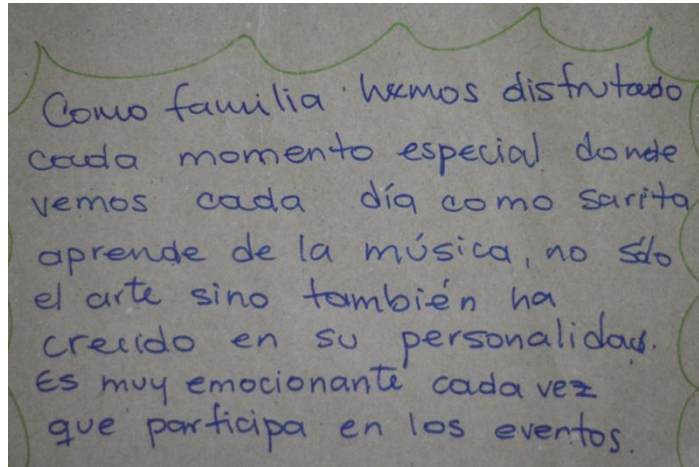 Como familia hemos disfrutado
cada momento especial donde
vemos cada día como sarita
aprende de la música, no sólo
el arte sino también ha
crecido en su personalidad.
Es muy emocionante cada vez
que participa en los eventos.